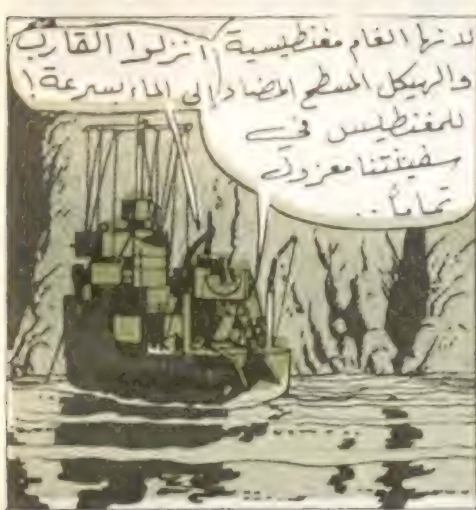 لأنها الغام مغنطيسية
والهيكل المسطح المضاد
للمغنطيس في
سفينتنا معزول
تماماً..
انزلوا القارب
إلى الماء بسرعة!